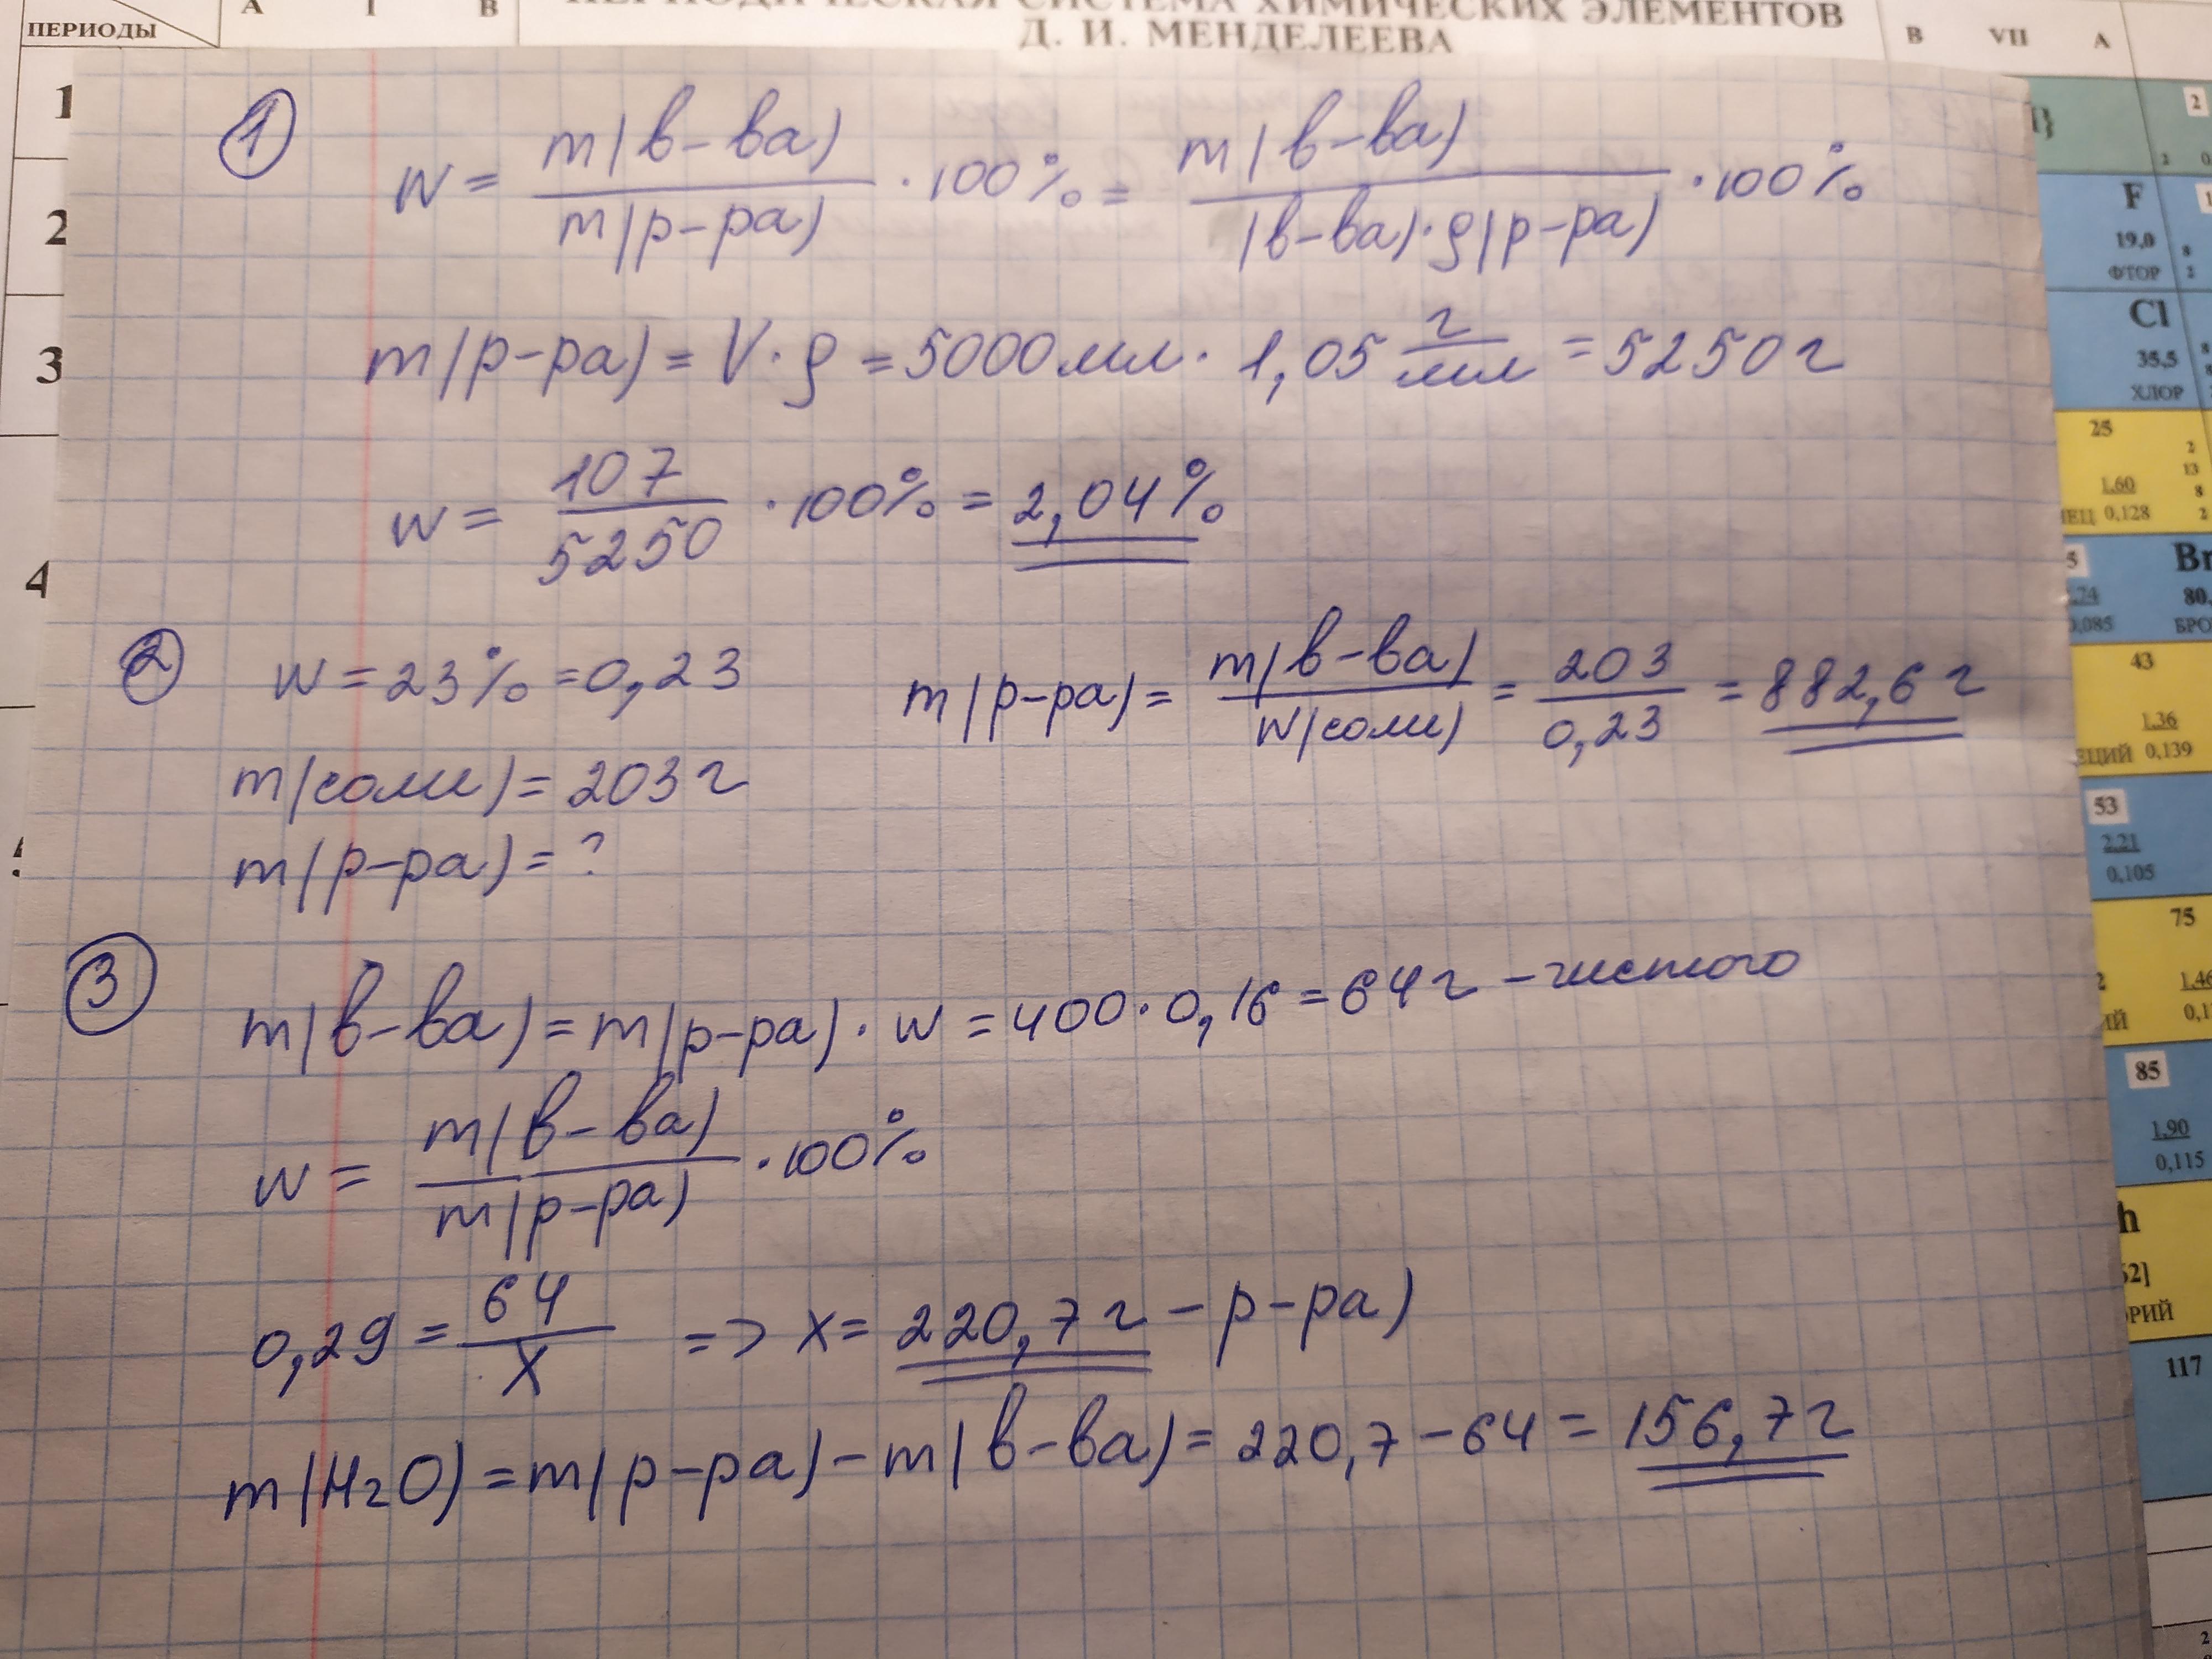 ПЕРИОДЫ
А I В
ПЕРИОДИЧЕСКАЯ СИСТЕМА ХИМИЧЕСКИХ ЭЛЕМЕНТОВ
Д. И. МЕНДЕЛЕЕВА
В VII А
1
2
3
4
① w = m(в-ва) / m(р-ра) · 100% = m(в-ва) / (в-ва) · ρ(р-ра) · 100%
m(р-ра) = V · ρ = 5000 мл · 1,05 г/мл = 5250 г
w = 107 / 5250 · 100% = 2,04%
② w = 23% = 0,23 m(р-ра) = m(в-ва) / w(соли) = 203 / 0,23 = 882,6 г
m(соли) = 203 г
m(р-ра) = ?
③ m(в-ва) = m(р-ра) · w = 400 · 0,16 = 64 г - чистого
w = m(в-ва) / m(р-ра) · 100%
0,29 = 64 / х => х = 220,7 г - р-ра)
m(H₂O) = m(р-ра) - m(в-ва) = 220,7 - 64 = 156,7 г
2
F
19,0
ФТОР
Cl
35,5
ХЛОР
25
1,60
0,128
Br
80,
БРО
0,085
43
1,36
0,139
53
2,21
0,105
75
1,46
85
1,90
0,115
117